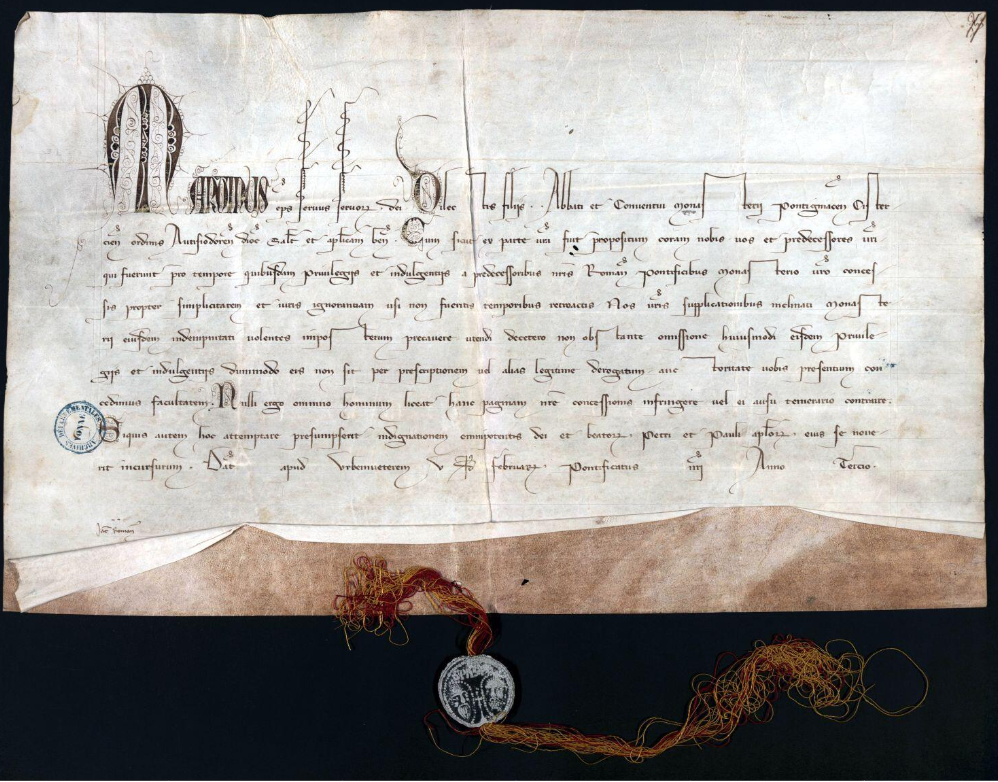 MARTINUS eps seruus seruorz dei Dilectis filijs . . Abbati et Conuentui monasterij Pontigniacen Cistercien
ordinis Autisiodoren dioc Salt et aplicam ben. Cum sicut ex parte uri fuit propositum coram nobis uos et predecessores uri
qui fuerunt pro tempore quibusdam Priuilegijs et indulgentijs a predecessoribus nris Roman Pontificibus monasterio uro conces
sis propter simplicitatem et iuris ignorantiam usi non fueritis temporibus retroactis. Nos uris supplicationibus inclinati monaste
rij eiusdem indempnitati uolentes imposterum precauere utendi decetero non obstante omissione huiusmodi eisdem Priuile
gijs et indulgentijs dummodo eis non sit per prescriptionem uel alias legitime derogatum auctoritate uobis presentium con
cedimus facultatem. Nulli ergo omnino hominum liceat hanc paginam nre concessionis infringere uel ei ausu temerario contraire.
Siquis autem hoc attemptare presumpserit indignationem omnipotentis dei et beatorz Petri et Pauli aplorz eius se noue
rit incursurum. Dat apud Urbemueterem V Februarz Pontificatus nri Anno Tercio.